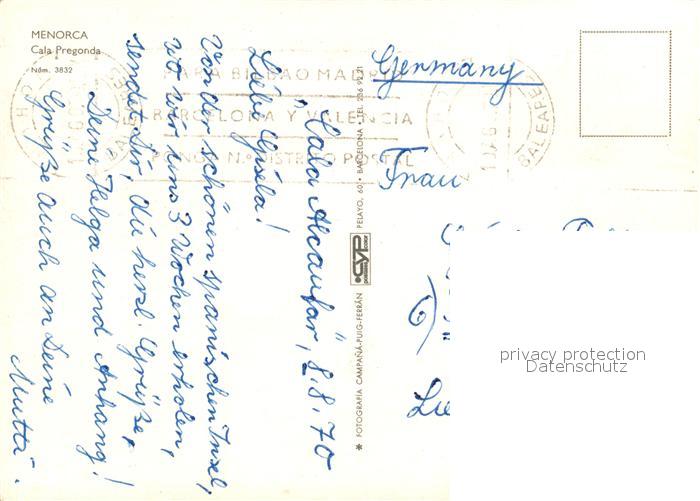 MENORCA
Cala Pregonda
Núm. 3832
PARA BILBAO MADR
BARCELONA Y VALENCIA
PONGA N.º DISTRITO POSTAL
BALEARES
BALEARES
"Cala Alcaufar", 8.8.70
Liebe Gisela!
Von der schönen spanischen Insel,
wo wir uns 3 Wochen erholen,
sendet Dir, Du herzl. Grüße,
Deine Helga und Anhang!
Grüße auch an Deine
Mutti.
* FOTOGRAFÍA CAMPAÑÁ-PUIG-FERRÁN
CYP
PELAYO, 60 • BARCELONA • TEL. 236 92 21
Germany
Frau
privacy protection
Datenschutz